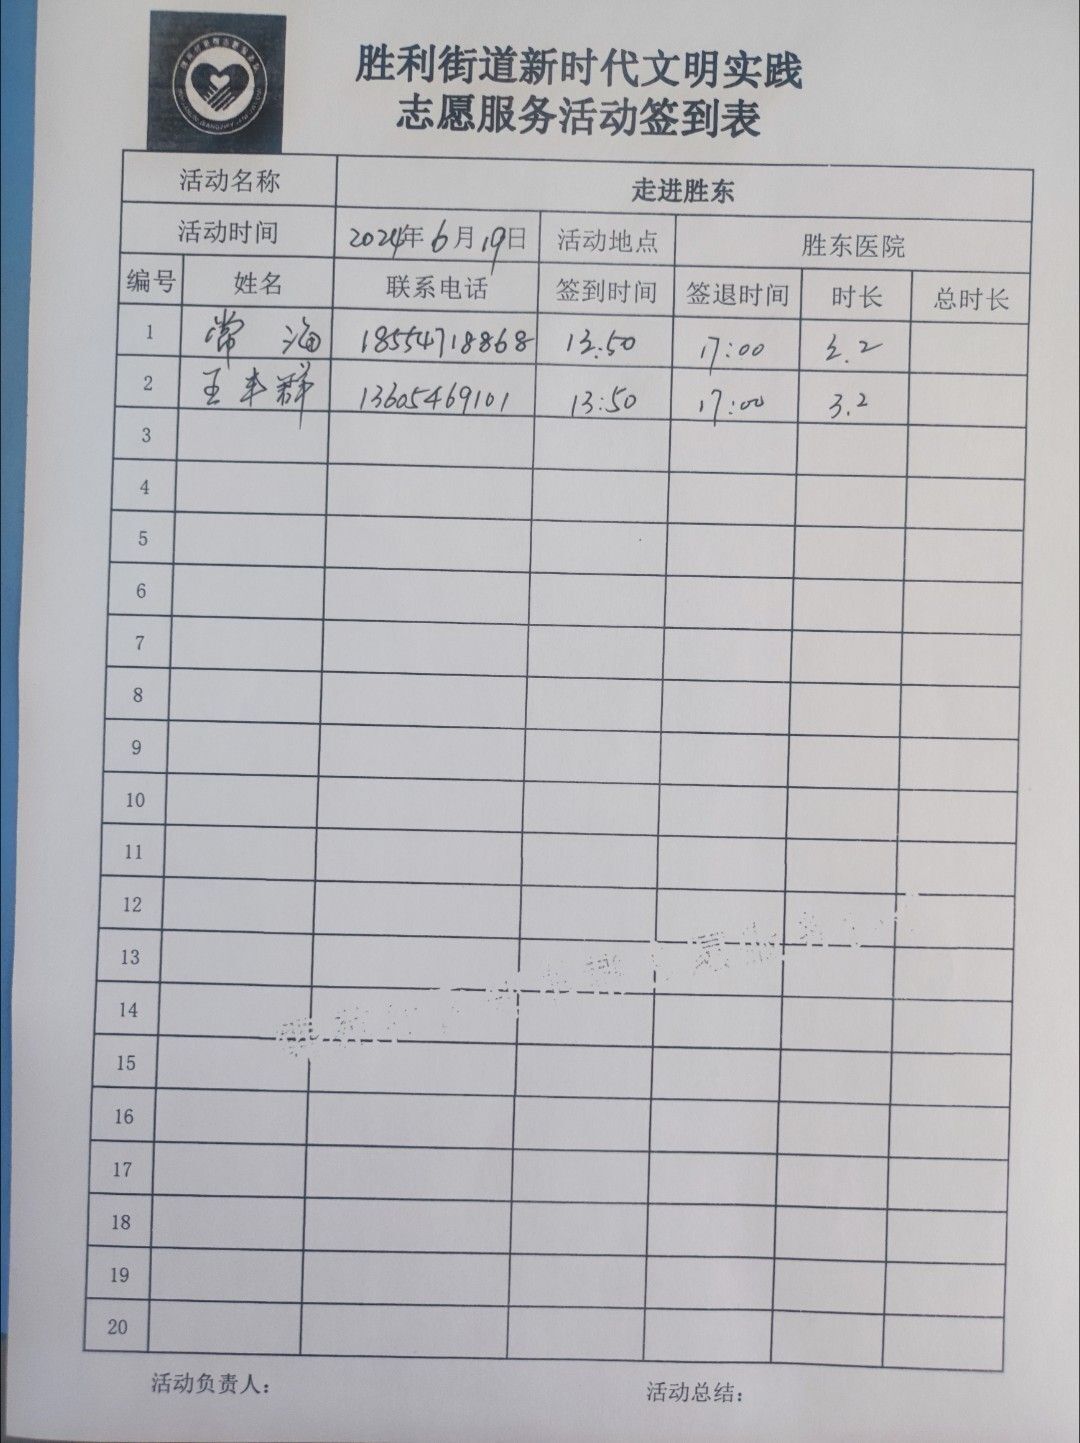 胜利街道新时代文明实践
志愿服务活动签到表
活动名称 走进胜东
活动时间 2024年6月19日 活动地点 胜东医院
编号 姓名 联系电话 签到时间 签退时间 时长 总时长
1 常海 18554718868 13:50 17:00 3.2
2 王丰群 13605469101 13:50 17:00 3.2
3
4
5
6
7
8
9
10
11
12
13
14
15
16
17
18
19
20
活动负责人： 活动总结：